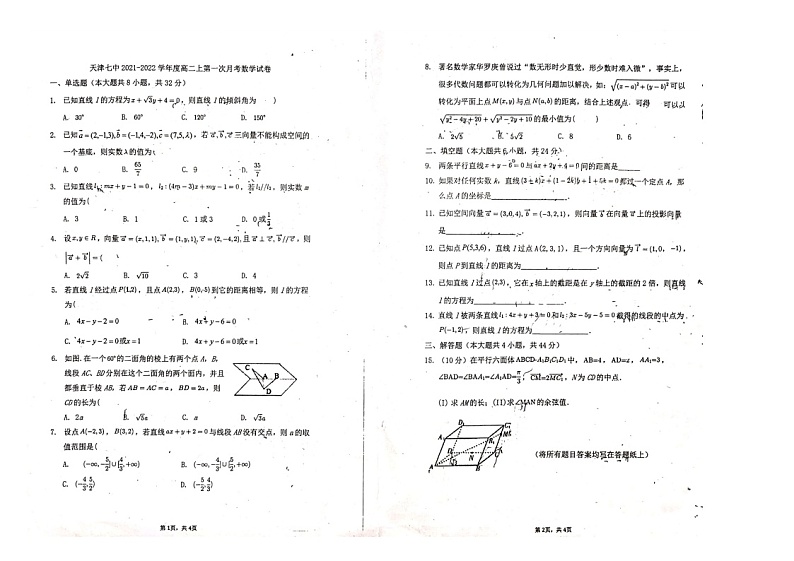 天津七中2021-2022学年度高二上第一次月考数学试卷
一、单选题（本大题共8小题，共32分）
1. 已知直线l的方程为x+√3y+4=0，则直线l的倾斜角为 )
A. 30° B. 60° C. 120° D. 150°
2. 已知a=(2,-1,3),b=(-1,4,-2),c=(7,5,λ)，若a,b,c三向量不能构成空间的
一个基底，则实数λ的值为(
A. 0 B. 65/7 C. 9 D. 35/7
3. 已知直线l₁:mx+y-1=0，l₂:(4m-3)x+my-1=0，若l₁//l₂，则实数m
的值为(
A. 3 B. 1 C. 1或3 D. 0或1/3
4. 设x,y∈R，向量a=(x,1,1),b=(1,y,1),c=(2,-4,2),且a⊥c,b//c，则
|a+b|=(
A. 2√2 B. √10 C. 3 D. 4
5. 若直线l经过点P(1,2)，且点A(2,3)，B(0,-5)到它的距离相等，则l的方程
为(
A. 4x-y-2=0 B. 4x+y-6=0
C. 4x-y-2=0或x=1 D. 4x+y-6=0或x=1
6. 如图.在一个60°的二面角的棱上有两个点A，B，
线段AC、BD分别在这个二面角的两个面内，并且
都垂直于棱AB，若AB=AC=a，BD=2a，则
CD的长为(
A. 2a B. √5a C. a D. √3a
7. 设点A(-2,3)，B(3,2)，若直线ax+y+2=0与线段AB没有交点，则a的取
值范围是(
A. (-∞,-5/2]∪[4/3,+∞) B. (-∞,-4/3]∪[5/2,+∞)
C. (-4/3,5/2) D. (-5/2,4/3)
第1页，共4页
8. 著名数学家华罗庚曾说过“数无形时少直觉，形少数时难入微”，事实上，
很多代数问题都可以转化为几何问题加以解决，如：√(x-a)²+(y-b)²可以
转化为平面上点M(x,y)与点N(a,b)的距离，结合上述观点，可得 可以以
的最小值为(
A. 2√5 B. 5√2 C. 8 D. 6
二、填空题（本大题共6小题，共24分）
9. 两条平行直线 间的距离是
10. 如果对任何实数k，直线(3+k)x+(1-2k)y+1+5k=0都过一个定点A，那
么点A的坐标是
11. 已知空间向量a=(3,0,4),b=(-3,2,1)，则向量b在向量a上的投影向量
是
12. 已知点P(5,3,6)，直线l过点A(2,3,1)，且一个方向向量为l=(1,0,-1)，
则点P到直线l的距离为
13. 已知直线l过点(2,3)，它在x轴上的截距是在y轴上的截距的2倍，则直线
l的方程为
14. 直线l被两条直线l₁:4x+y+3=0和l₂:3x-5y-5=0截得的线段的中点为
P(-1,2)，则直线l的方程为
三、解答题（本大题共4小题，共44分）
15. （10分）在平行六面体ABCD-A₁B₁C₁D₁中，AB=4，AA₁=3，
，N为CD的中点.
(I) 求AM的长；(II)求∠MAN的余弦值.
(将所有题目答案均写在答题纸上)
第2页，共4页